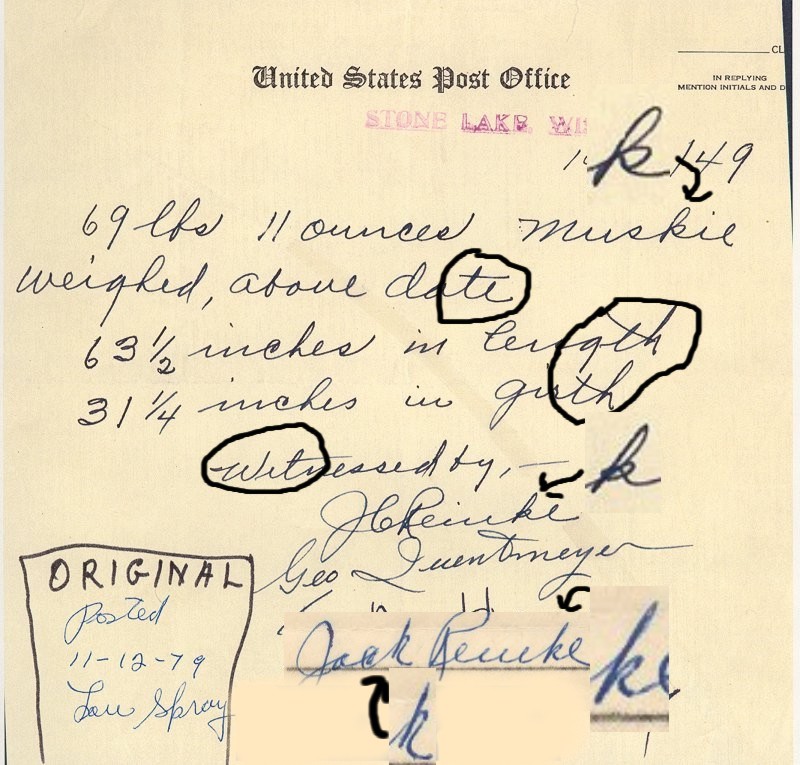 CL
United States Post Office
IN REPLYING
MENTION INITIALS AND D
STONE LAKE WI
k 149
69 lbs 11 ounces Muskie
weighed, above date
63 1/2 inches in length
31 1/4 inches in girth
Witnessed by, —
k
J C Reinke
Geo Quentmeyer
ORIGINAL
Posted
11-12-79
Lou Spray
Jack Reinke
ke
k